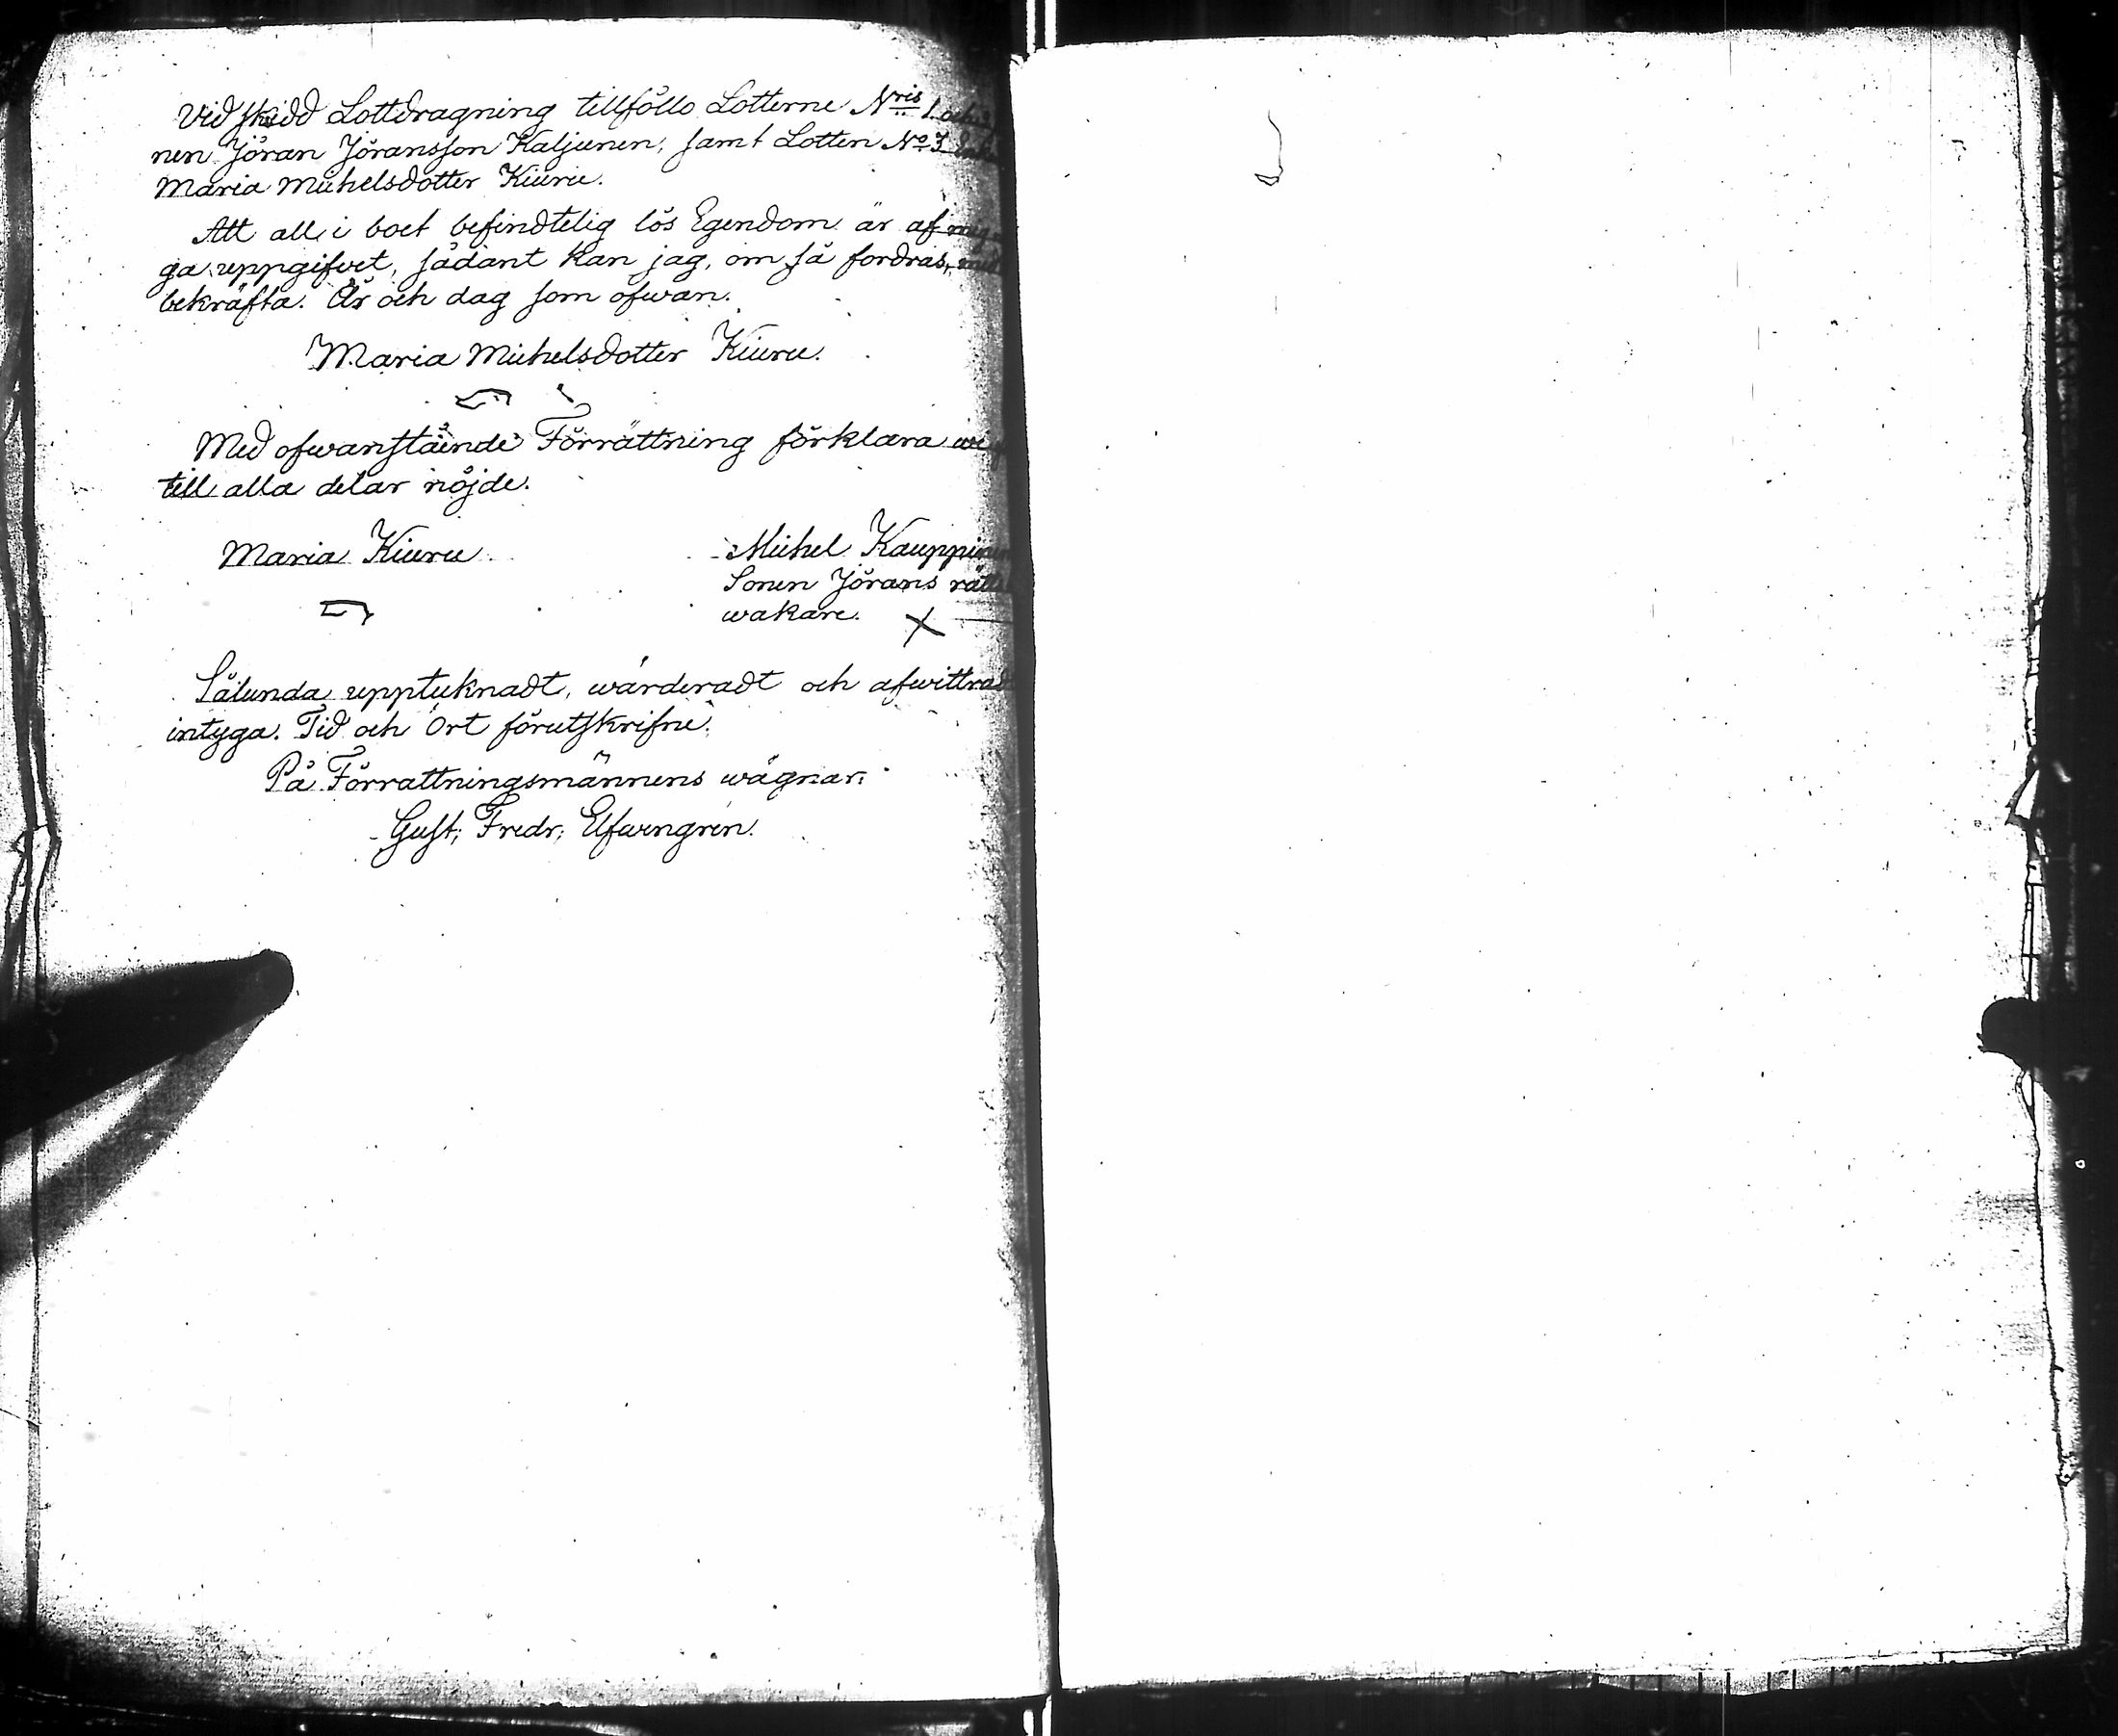 Vid skedd Lottdragning tillföllo Lotterne Nris 1 och 2
nen Jöran Jöransson Kaljunen, samt Lotten No 3 Enkan
Maria Michelsdotter Kiuru.
Att all i boet befindtelig lös Egendom är af mig
ga uppgifvet, sådant kan jag, om så fordras, med
bekräfta. År och dag som ofwan.
Maria Michelsdotter Kiuru.
Med ofwanstående Förrättning förklara wi
till alla delar nöjde.
Maria Kiuru
Michel Kauppinen
Sonen Jörans rätts
wakare.
Sålunda upptecknadt, wärderadt och afwittradt
intyga. Tid och Ort förutskrifne.
På Förrattningsmännens wägnar.
Gust; Fredr; Elfwengren.